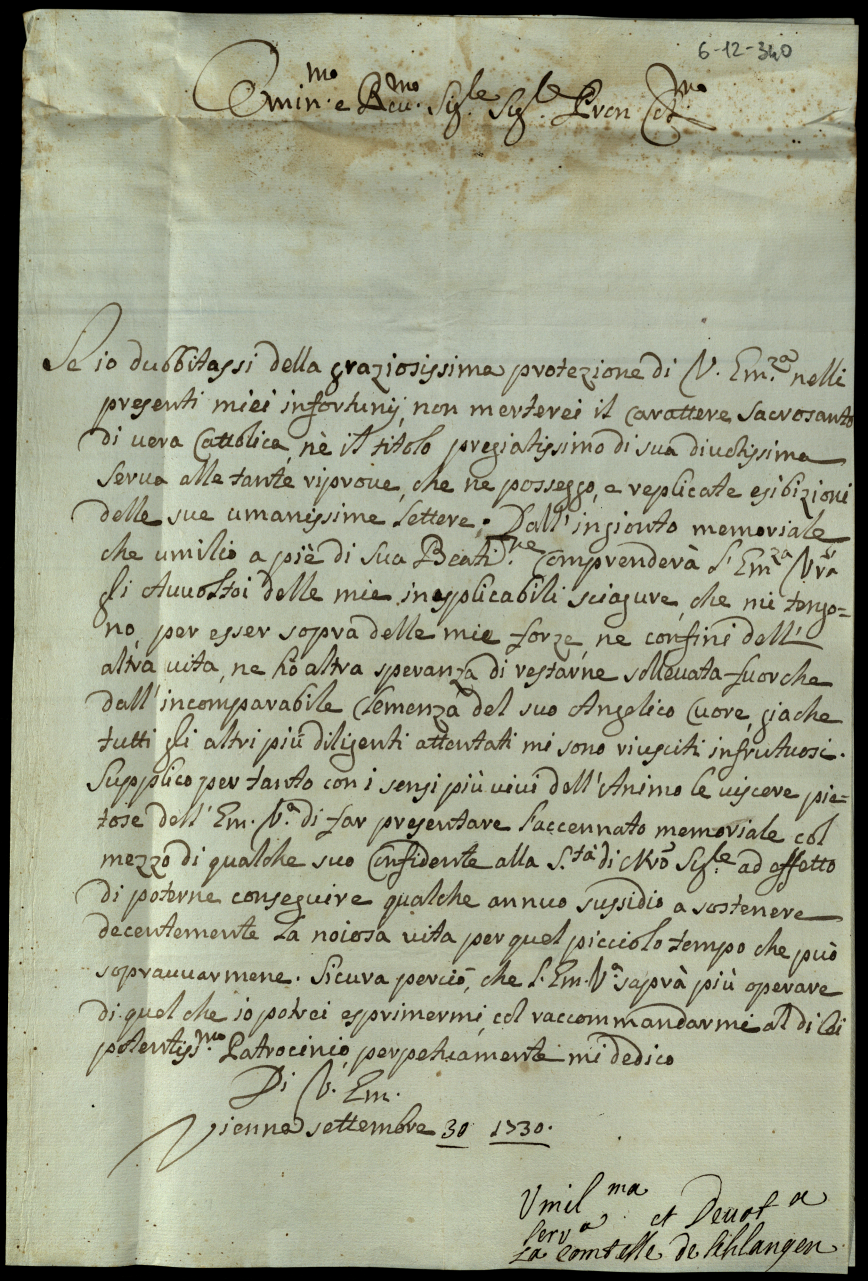 6-12-340
Emin.mo e Rev.mo Sig.le Sig.le Pron Col.mo
Se io dubbitassi della graziosissima protezione di V. Em.za nelli
presenti miei infortunij, non merterei il carattere sacrosanto
di vera Cattolica, nè il titolo pregiatissimo di sua divotissima
serva alle tante riprove, che ne posseggo, e replicate esibizioni
delle sue umanissime lettere. Dall'ingionto memoriale
che umilio a piè di sua Beati.ne comprenderà l'Em.za Vra
gli Avvoltoi delle mie inesplicabili sciagure, che mi tengo=
no, per esser sopra delle mie forze, ne confini dell'
altra vita, ne hò altra speranza di restarne sollevata fuorche
dall'incomparabile Clemenza del suo Angelico Cuore, giache
tutti gli altri più diligenti attentati mi sono riusciti infrutuosi.
Supplico per tanto con i sensi più vivi dell'Animo le viscere pie=
tose dell'Em. V.a di far presentare l'accennato memoriale col
mezzo di qualche suo Confidente alla S.tà di Nrõ Sig.le ad effetto
di poterne conseguire qualche annuo sussidio a sostenere
decentemente la noiosa vita per quel picciolo tempo che può
sopravvarmene. Sicura perciò, che l'Em. V.a saprà più operare
di quel che io potrei esprimermi, col raccommandarmi al di lei
potentiss.mo Patrocinio, perpetuamente mi dedico
Di V. Em.
Vienna settembre 30 1730.
Vmil ma et Devot a
serv a
La Comtesse de Schlangen